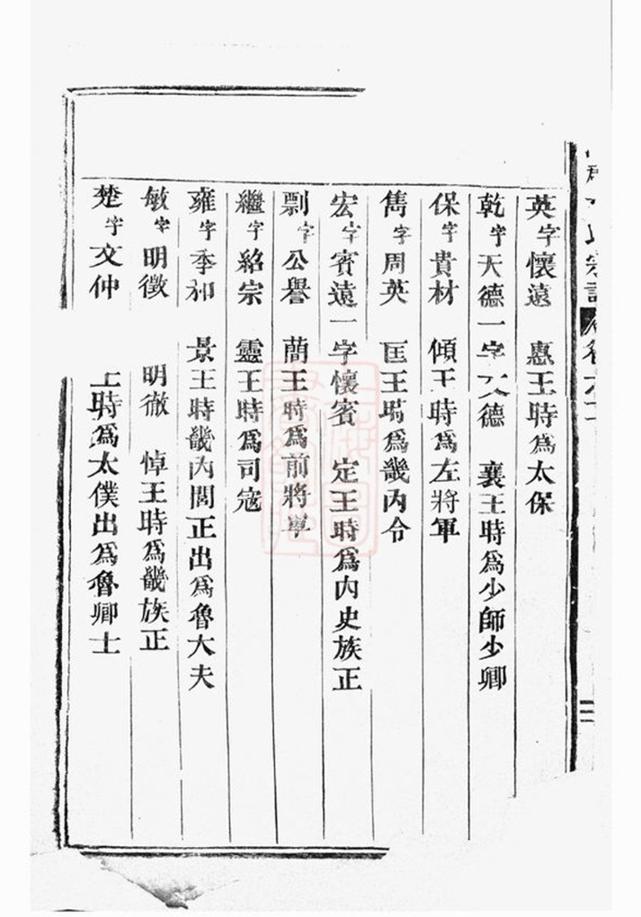 英字懷遠 惠王時爲太保
乾字天德一字大德 襄王時爲少師少卿
保字貴材 傾王時爲左將軍
雋字周英 匡王時爲畿內令
宏字賓遠一字懷賓 定王時爲內史族正
剽字公譽 蕳王時爲前將軍
繼字紹宗 靈王時爲司寇
雍字季和 景王時畿內閭正出爲魯大夫
敏字明徵 明徹 悼王時爲畿族正
楚字文仲 王時爲太僕出爲魯卿士